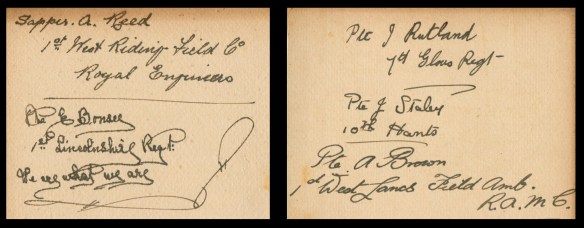 Sapper. A. Reed
1st West Riding Field Co
Royal Engineers
Pte E Bonser
1st Lincolnshire Regt.
We are what we are
Pte J Rutland
7th Glous Regt
Pte J Staley
10th Hants
Pte A Brown
1st West Lancs Field Amb.
R.A.M.C.